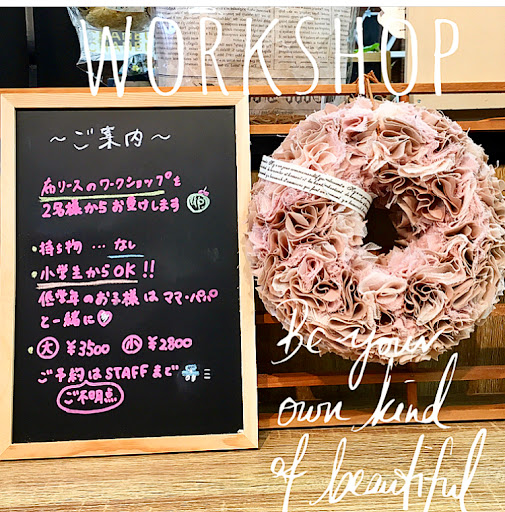 WORKSHOP
～ご案内～
布リースのワークショップを
2名様からお受けします
・持ち物…なし
・小学生からOK!!
低学年のお子様はママ・パパ
と一緒に
・大 ¥3500 小 ¥2800
ご予約はSTAFFまで
ご不明点。
Be your
own kind
of beautiful